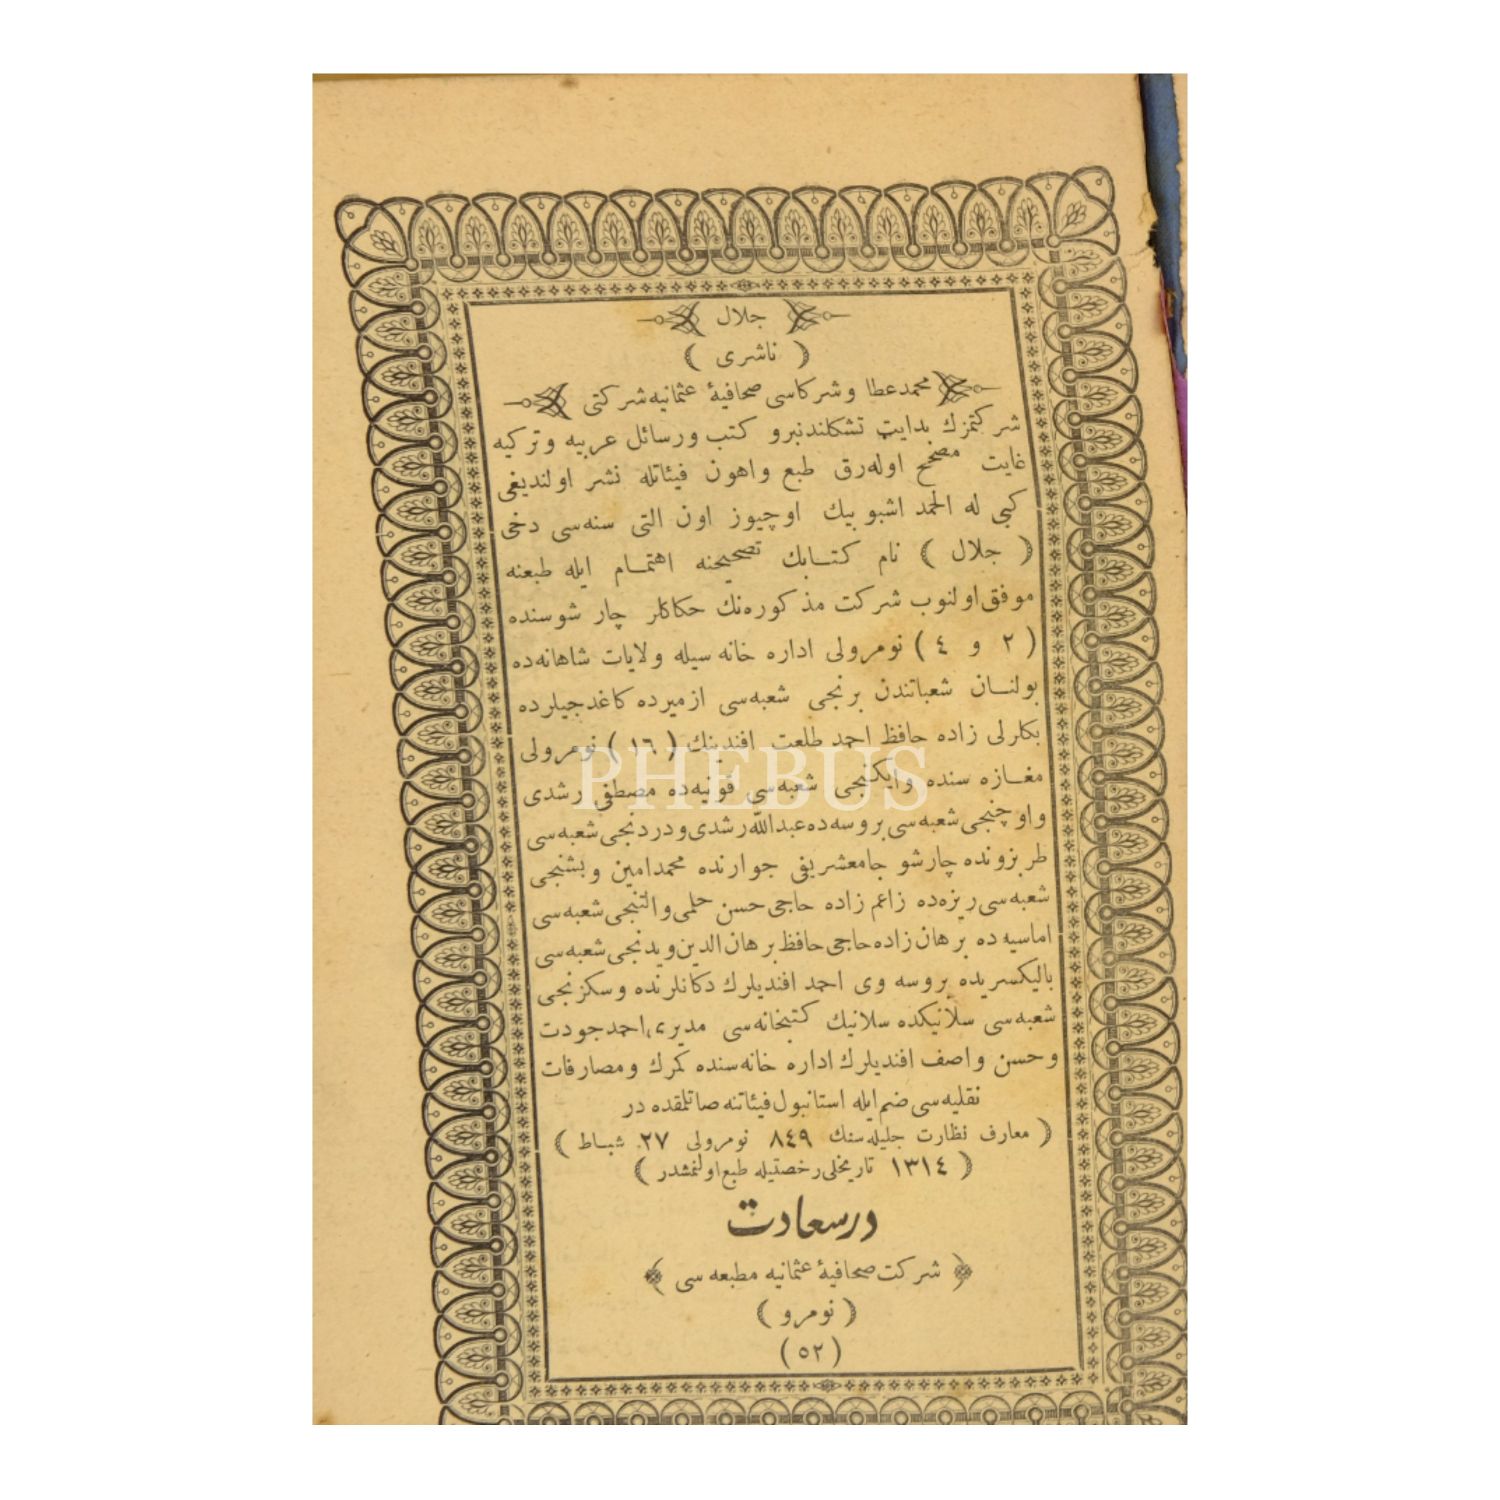 جلال
( ناشری )
محمد عطا و شرکاسی صحافیهٔ عثمانیه شرکتی
شرکتمزك بدایت تشکلندنبرو کتب و رسائل عربیه و ترکیه
غایت مصحح اوله‌رق طبع و اهون فیئاتله نشر اولندیغی
کبی له الحمد اشبو بیك اوچیوز اون التی سنه‌سی دخی
( جلال ) نام کتابك تصحیحنه اهتمام ایله طبعنه
موفق اولنوب شرکت مذکوره‌نك حکاکلر چارشوسنده
( ٢ و ٤ ) نومرولی اداره خانه‌سیله ولایات شاهانه‌ده
بولنان شعباتندن برنجی شعبه‌سی ازمیرده کاغدجیلرده
بکارلی زاده حافظ احمد طلعت افندینك ( ١٦ ) نومرولی
مغازه سنده و ایکنجی شعبه‌سی قونیه‌ده مصطفی رشدی
و اوچنجی شعبه‌سی بروسه‌ده عبدالله رشدی و دردنجی شعبه‌سی
طربزونده چارشو جامعشریفی جوارنده محمد امین و بشنجی
شعبه‌سی ریزه‌ده زاعم زاده حاجی حسن حلمی و التنجی شعبه‌سی
اماسیه ده برهان زاده حاجی حافظ برهان الدین و یدنجی شعبه‌سی
بالیکسریده بروسه وی احمد افندیلرك دکانلرنده و سکزنجی
شعبه‌سی سلانیکده سلانیك کتبخانه‌سی مدیری احمد جودت
و حسن واصف افندیلرك اداره خانه‌سنده کمرك و مصارفات
نقلیه‌سی ضم ایله استانبول فیئاتنه صاتلمقده در
( معارف نظارت جلیله‌سنك ٨٤٩ نومرولی ٢٧ شباط )
( ١٣١٤ تاریخلی رخصتیله طبع اولنمشدر )
درسعادت
شرکت صحافیهٔ عثمانیه مطبعه سی
( نومرو )
( ٥٢ )
PHEBUS